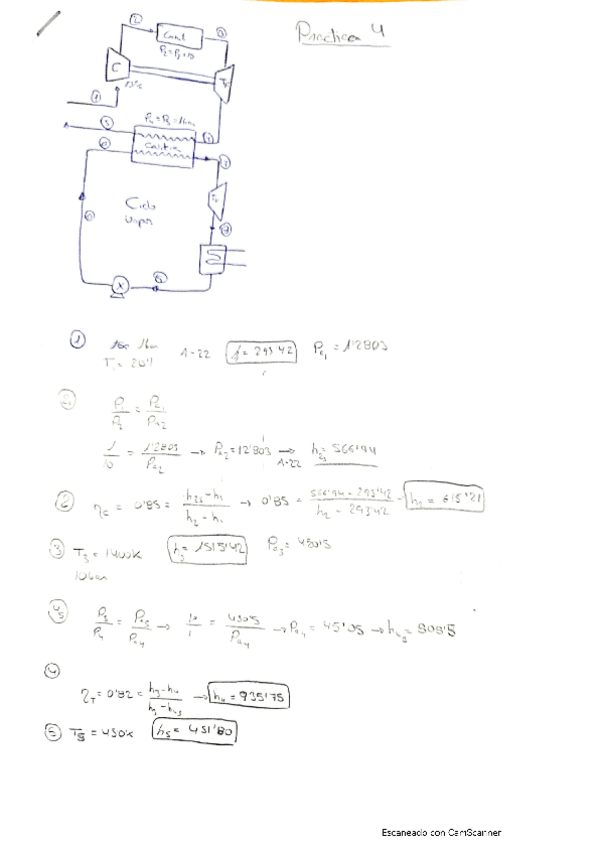 Practica 4
②
Camb
③
P₂=P₃=10
C
①
⑤
P₄=P₅=1bar
Caldera
Ciclo
vapor
①
T₁ = 20º
A-22
h = 293'42
Pr₁ = 1'2803
P₁/P₂ = Pr₁/Pr₂
1/10 = 1'2803/Pr₂ → Pr₂=12'803 → A-22 h₂s = 566'44
② ηc = 0'85 = (h₂s-h₁)/(h₂-h₁) → 0'85 = (566'44-293'42)/(h₂-293'42) h₂ = 615'21
③ T₃ = 1400K h₃ = 1515'42 Pr₃ = 450'5
10bar
P₃/P₄ = Pr₃/Pr₄ → 10/1 = 450'5/Pr₄ → Pr₄ = 45'05 → h₄s = 808'5
④
ηT = 0'82 = (h₃-h₄)/(h₃-h₄s) → h₄ = 935'75
⑤ T₅ = 450K h₅ = 451'80
Escaneado con CamScanner